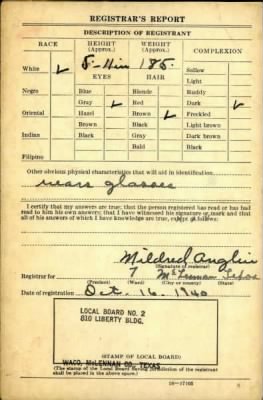 REGISTRAR'S REPORT
DESCRIPTION OF REGISTRANT
RACE HEIGHT (Approx.) WEIGHT (Approx.) COMPLEXION
White ✓ 5-11in 185. Sallow
EYES HAIR Light
Negro Blue Blonde Ruddy
Gray ✓ Red Dark ✓
Oriental Hazel Brown ✓ Freckled
Brown Black Light brown
Indian Black Gray Dark brown
Bald Black
Filipino
Other obvious physical characteristics that will aid in identification
wears glasses
I certify that my answers are true; that the person registered has read or has had
read to him his own answers; that I have witnessed his signature or mark and that
all of his answers of which I have knowledge are true, except as follows:
Mildred Anglin
(Signature of registrar)
Registrar for 7 McLennan Texas
(Precinct) (Ward) (City or county) (State)
Date of registration Oct. 16, 1940
LOCAL BOARD NO. 2
810 LIBERTY BLDG.
WACO, McLENNAN CO., TEXAS
(STAMP OF LOCAL BOARD)
(The stamp of the Local Board having jurisdiction of the registrant
shall be placed in the above space.)